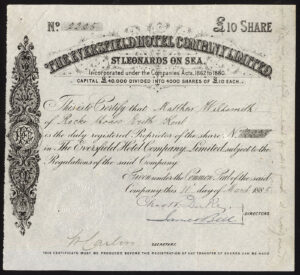 No. 2225 £10 SHARE
THE EVERSFIELD HOTEL COMPANY, LIMITED.
ST LEONARDS ON SEA.
Incorporated under the Companies Acts, 1862 to 1880.
CAPITAL £40,000 DIVIDED INTO 4000 SHARES OF £10 EACH.
This is to Certify that Matthew
of
is the duly registered Proprietor of the share No. 2225
in The Eversfield Hotel Company, Limited, subject to the
Regulations of the said Company.
Given under the Common Seal of the said
Company, this day of March 188
DIRECTORS.
James
SECRETARY.
THIS CERTIFICATE MUST BE PRODUCED BEFORE THE REGISTRATION OF ANY TRANSFER OF SHARES CAN BE MADE